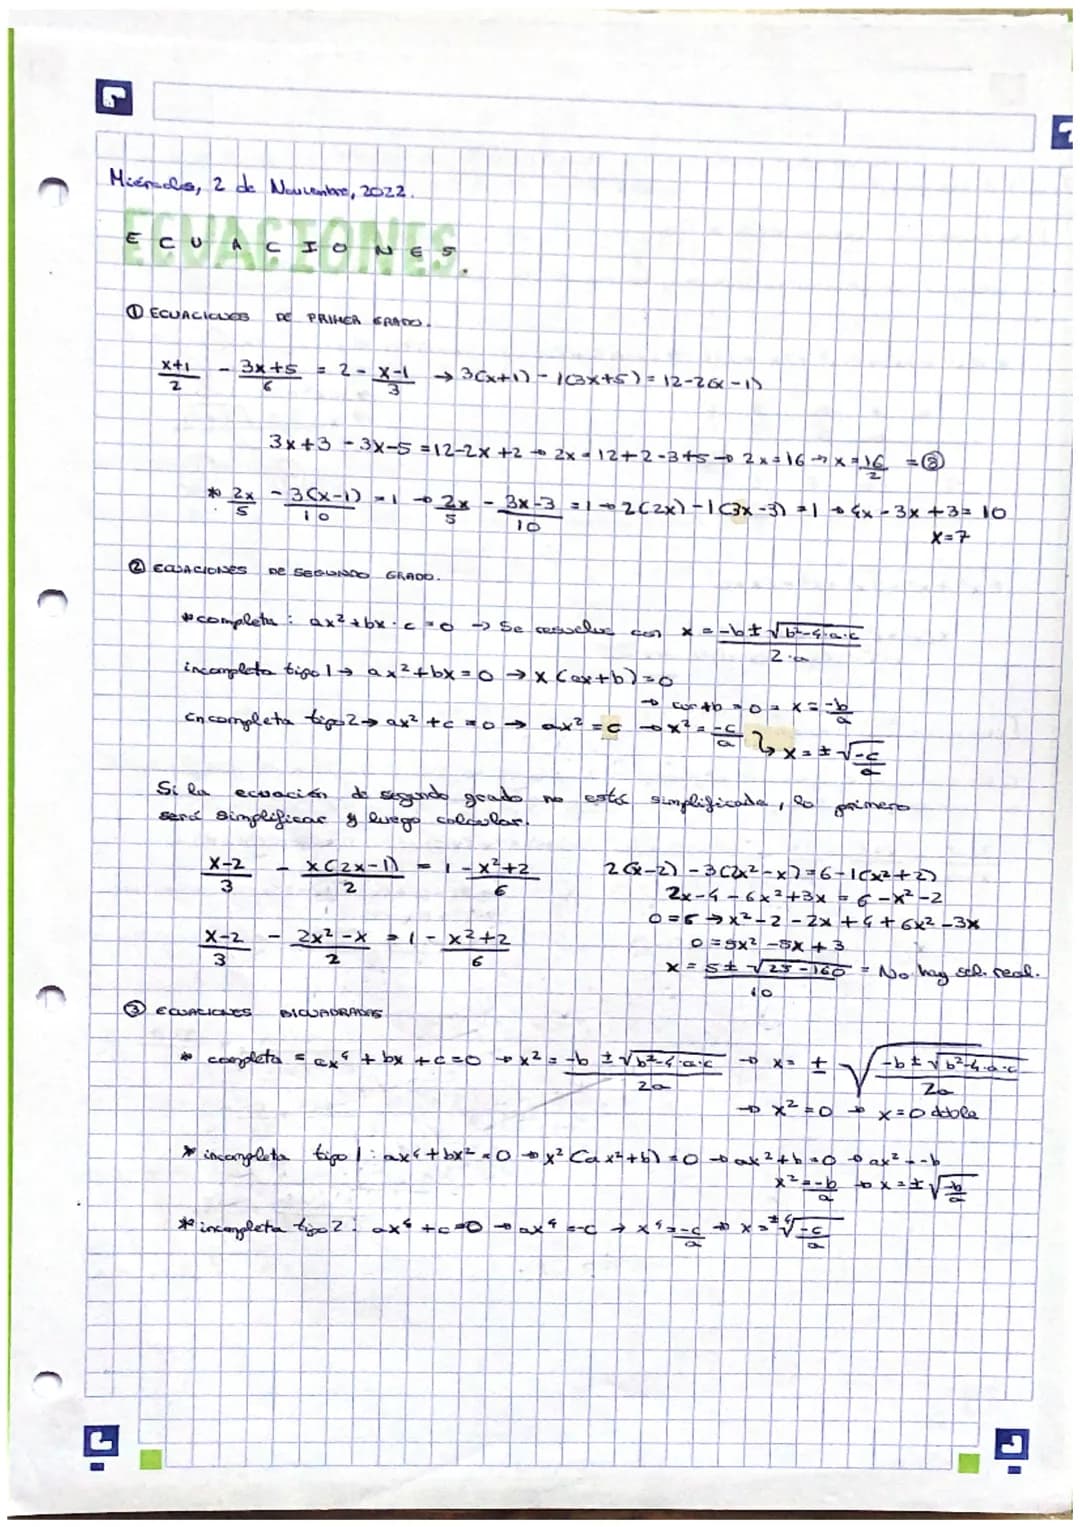 Miércoles, 2 de Noviembre, 2022.
ECUACIONES.
① ECUACIONES DE PRIMER GRADO.
x+1/2 - 3x+5/6 = 2 - x-1/3 → 3(x+1) - 1(3x+5) = 12-2(x-1)
3x+3 -3x-5 =12-2x+2 → 2x = 12+2-3+5 → 2x=16 → x=16/2 = ⑧
* 2x/5 - 3(x-1)/10 = 1 → 2x/5 - 3x-3/10 = 1 → 2(2x) - 1(3x-3) = 1 → 4x - 3x + 3 = 10
x=7
② ECUACIONES DE SEGUNDO GRADO.
*completa : ax²+bx·c=0 → Se resuelve con x = -b±√b²-4·a·c/2·a
incompleta tipo 1 → ax²+bx=0 → x(ax+b)=0
→ ax+b=0 = x=-b/a
incompleta tipo 2 → ax²+c=0 → ax²=c → x²=-c/a ↳ x=±√-c/a
Si la ecuación de segundo grado no está simplificada, lo primero
será simplificar y luego calcular.
x-2/3 - x(2x-1)/2 = 1 - x²+2/6
x-2/3 - 2x²-x/2 = 1 - x²+2/6
2(x-2) - 3(2x²-x) = 6-1(x²+2)
2x-4-6x²+3x = 6-x²-2
0=6 → x²-2-2x+4+6x²-3x
0=5x²-5x+3
x = 5±√25-160/10 = No hay sol. real.
③ ECUACIONES BICUADRADAS
* completa = ax⁴+bx+c=0 → x²=-b±√b²-4·a·c/2a → x= ±√-b±√b²-4·a·c/2a
→ x²=0 → x=0 doble
* incompleta tipo 1: ax⁴+bx²=0 → x²(ax²+b)=0 → ax²+b=0 → ax²=-b
x²=-b/a → x=±√-b/a
* incompleta tipo 2: ax⁴+c=0 → ax⁴=-c → x⁴=-c/a → x=±⁴√-c/a